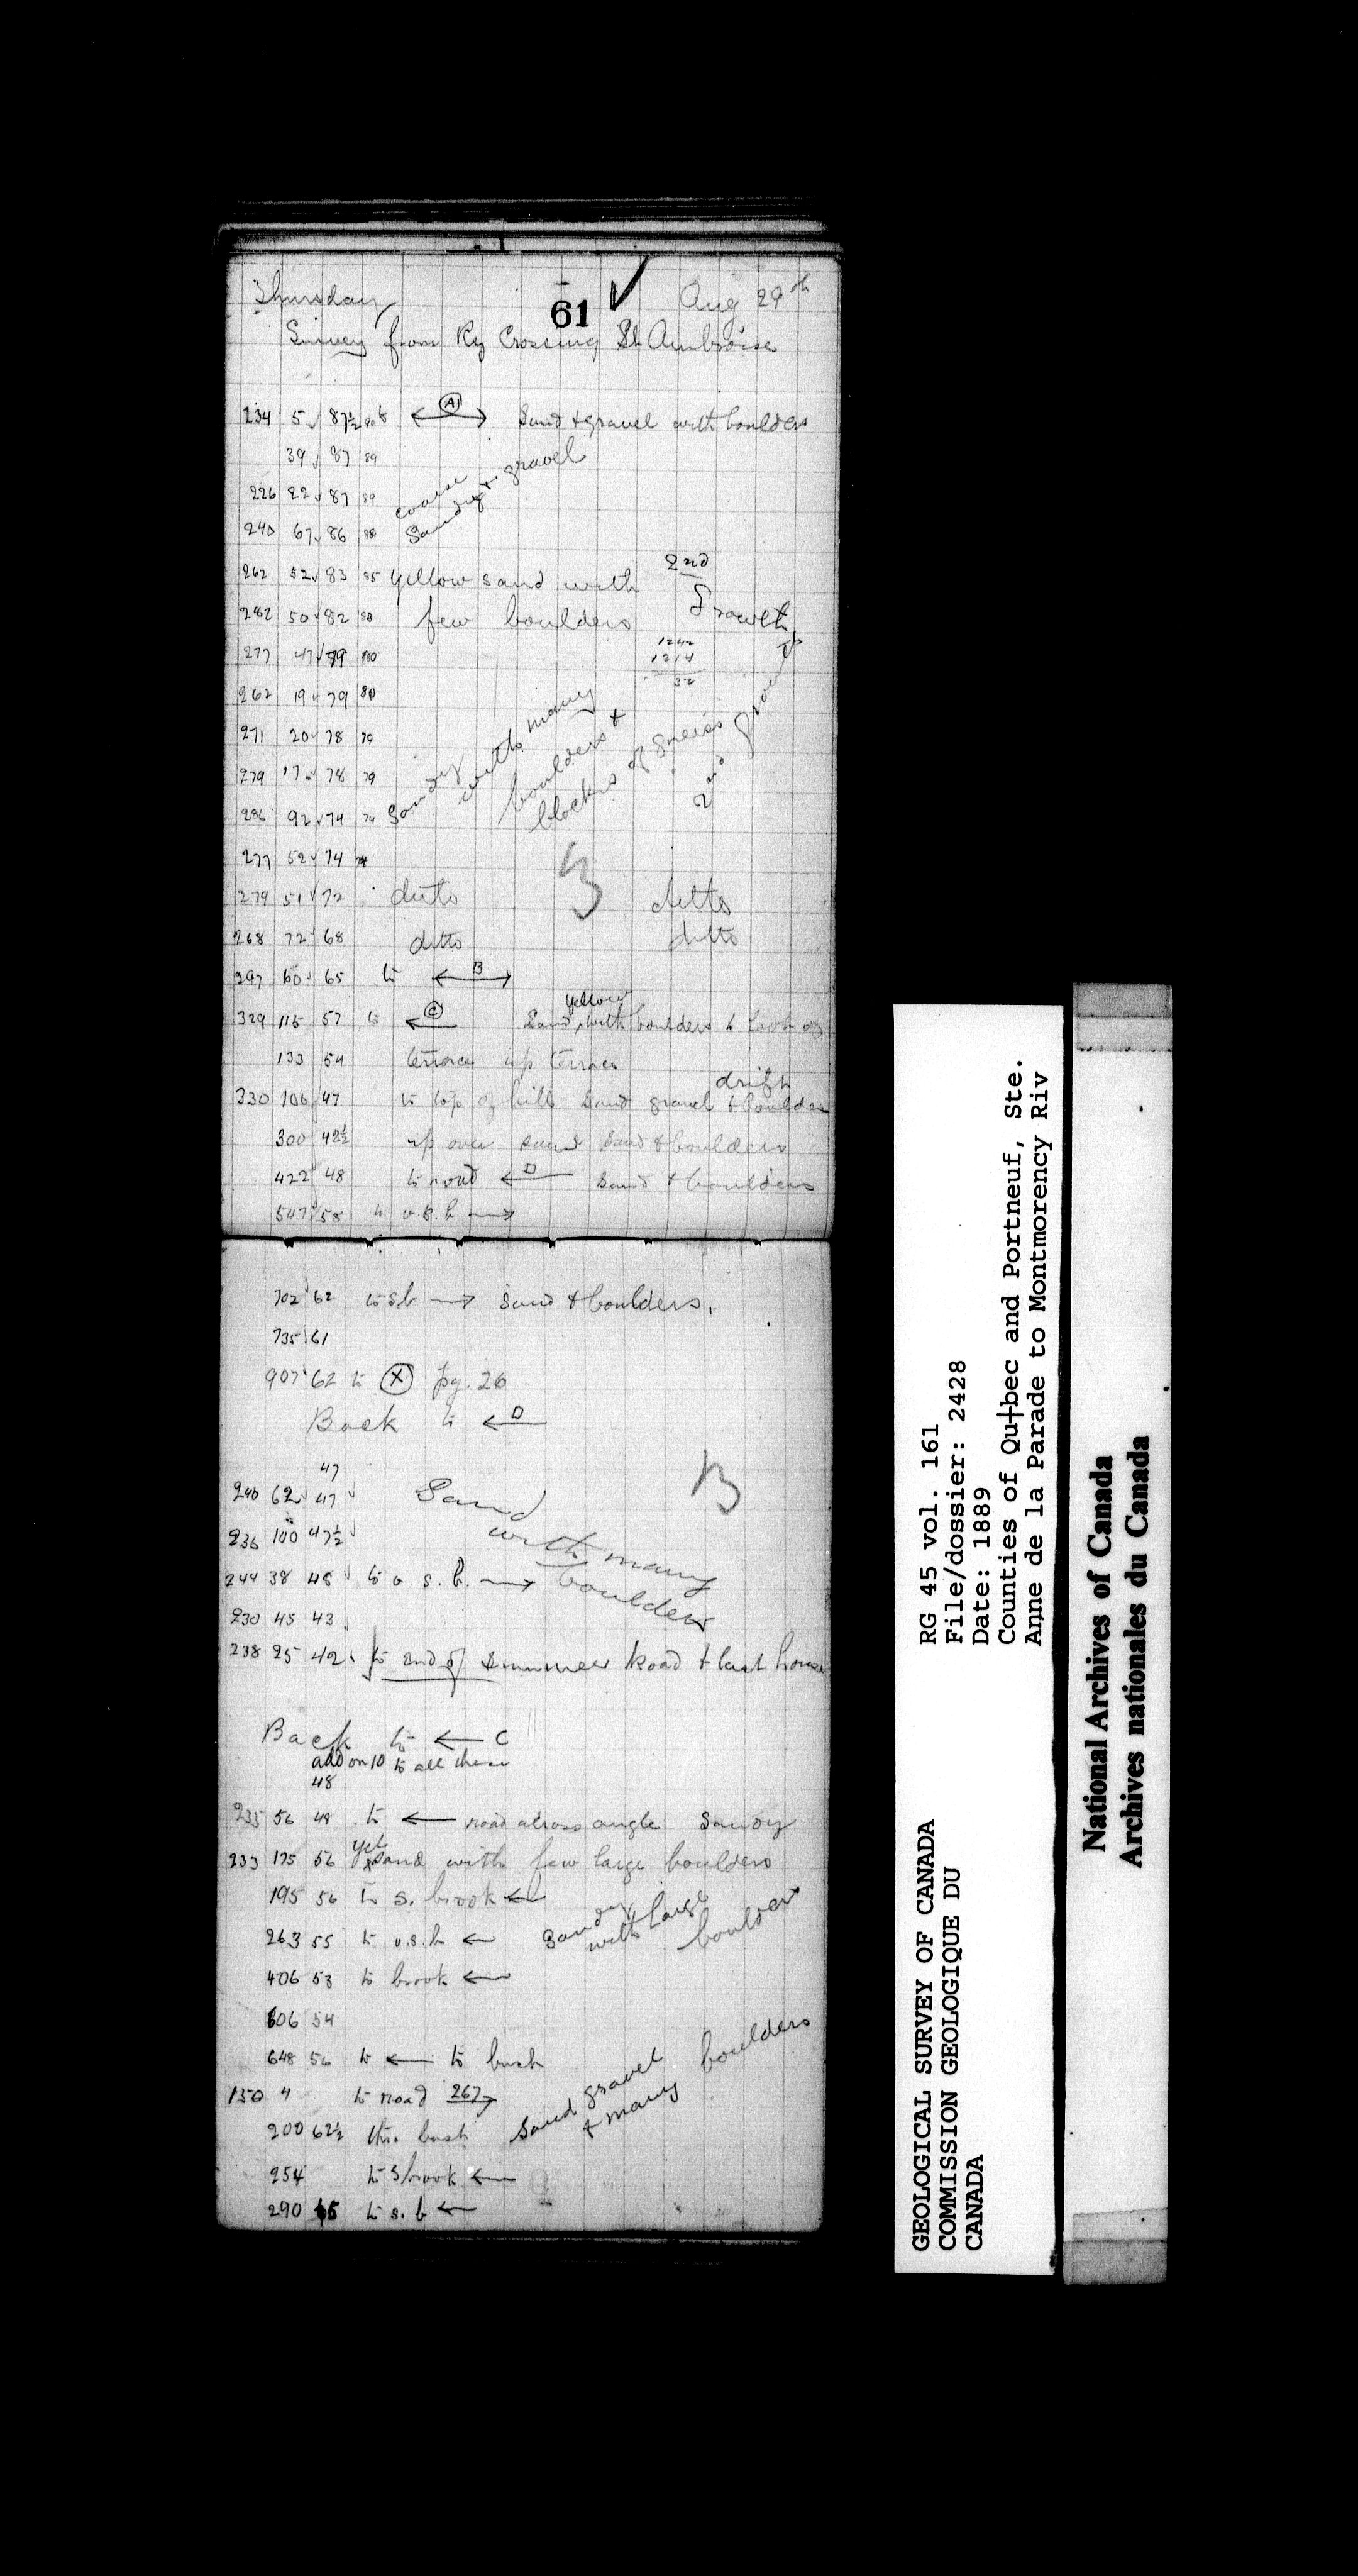 Thursday 61 Aug 29th
Survey from Ry Crossing St Ambroise
234 5 87½ to A Sand & gravel with boulders
39 87 89
226 22 87 89
coarse
Sandy & gravel
240 67 86 88
262 52 83 85 yellow sand with 2nd
282 50 82 few boulders growth
1242
1214
32
277 47 79 80
262 19 79 80
271 20 78 79
279 17 78 79
286 92 74
Sandy with many
boulders &
blocks of gneiss
2nd growth
277 52 74
279 51 72 ditto ditto
268 72 68 ditto ditto
297 60 65 to B
yellow
329 115 57 to C Sand, with boulders to foot of
133 54 terrace up terrace
drift
330 106 47 to top of hill Sand gravel & boulders
300 42½ up over sand & boulders
422 48 to road D Sand & boulders
547 58 to v.s.b →
702 62 to s b → Sand & boulders.
735 61
907 62 to X pg. 26
Back to ← D
47
240 62 47
236 100 47½
Sand
with many
boulders
244 38 48 to v s. b. →
230 45 43
238 25 42 to end of Summer Road & last house
Back to ← C
add on 10 to all these
48
235 56 48 to ← road across angle Sandy
yel
233 175 56 sand with few large boulders
195 56 to s. brook ←
Sandy
with large
boulders
263 55 to v.s.b ←
406 53 to brook ←
606 54
648 56 to ← to bush
150 4 to road 267
Sand gravel
& many boulders
200 62½ thro. bush
254 to s brook ←
290 65 to s. b ←
RG 45 vol. 161
File/dossier: 2428
Date: 1889
Counties of Qu†bec and Portneuf, Ste.
Anne de la Parade to Montmorency Riv
GEOLOGICAL SURVEY OF CANADA
COMMISSION GEOLOGIQUE DU
CANADA
National Archives of Canada
Archives nationales du Canada